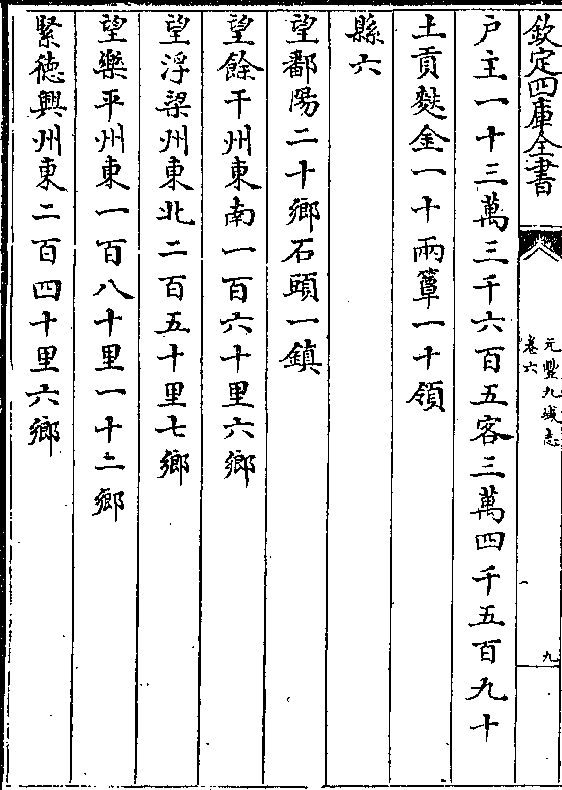 欽定四庫全書
元豐九域志
卷六
九
戶主一十三萬三千六百五客三萬四千五百九十
土貢麩金一十兩簟一十領
縣六
望鄱陽二十鄉石頭一鎮
望餘干州東南一百六十里六鄉
望浮梁州東北二百五十里七鄉
望樂平州東一百八十里一十二鄉
緊德興州東二百四十里六鄉